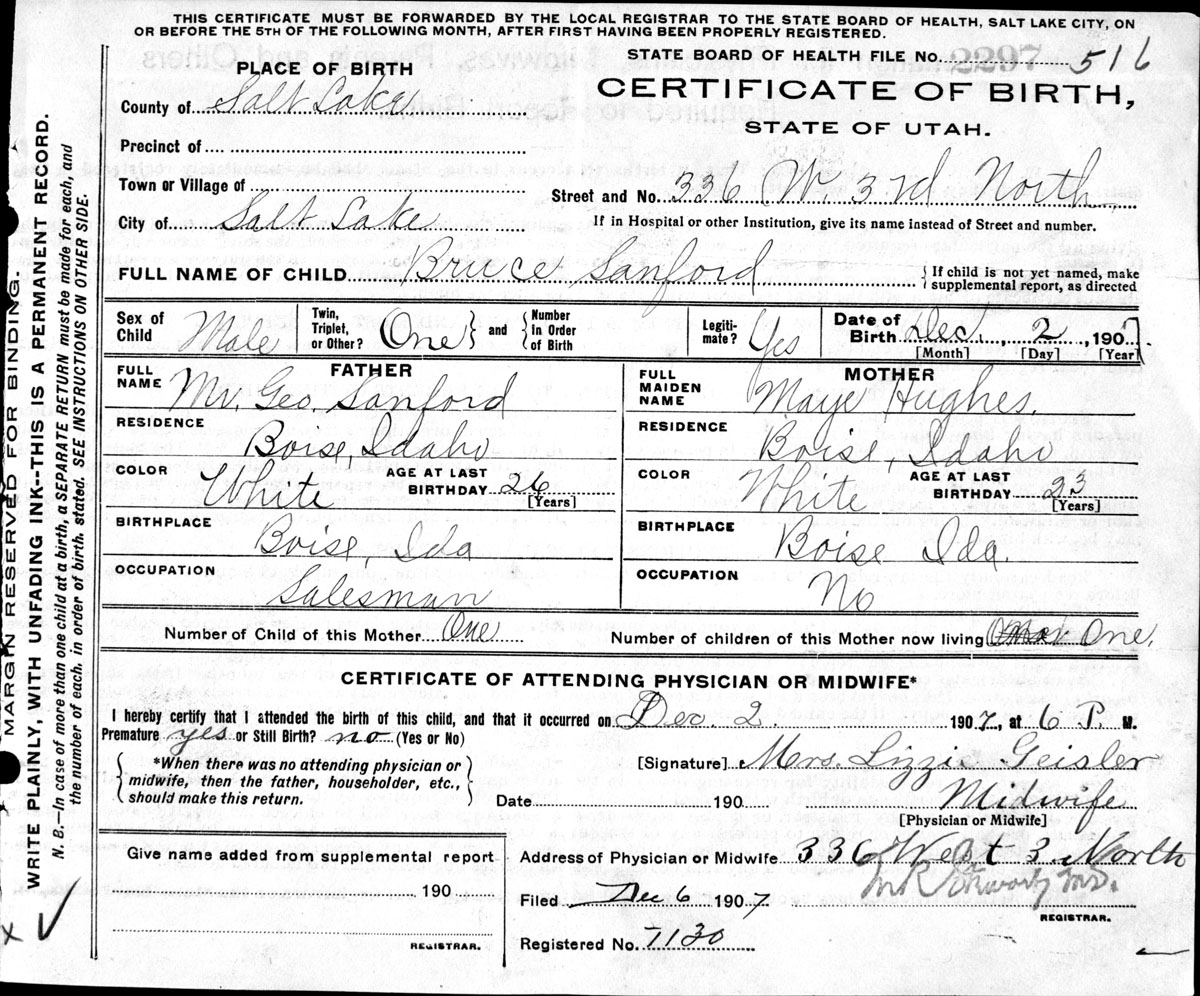 THIS CERTIFICATE MUST BE FORWARDED BY THE LOCAL REGISTRAR TO THE STATE BOARD OF HEALTH, SALT LAKE CITY, ON
OR BEFORE THE 5TH OF THE FOLLOWING MONTH, AFTER FIRST HAVING BEEN PROPERLY REGISTERED.
STATE BOARD OF HEALTH FILE No. 2297 516
PLACE OF BIRTH
CERTIFICATE OF BIRTH,
County of Salt Lake
STATE OF UTAH.
Precinct of
Town or Village of
Street and No. 336 W. 3rd North
City of Salt Lake
If in Hospital or other Institution, give its name instead of Street and number.
FULL NAME OF CHILD Bruce Sanford
If child is not yet named, make
supplemental report, as directed
Sex of Child Male Twin, Triplet, or Other? One and Number In Order of Birth Legiti-mate? Yes Date of Birth Dec. 2, 1907
[Month] [Day] [Year]
FATHER MOTHER
FULL NAME Mr. Geo. Sanford FULL MAIDEN NAME Maye Hughes.
RESIDENCE Boise, Idaho RESIDENCE Boise, Idaho
COLOR White AGE AT LAST BIRTHDAY 26 [Years] COLOR White AGE AT LAST BIRTHDAY 23 [Years]
BIRTHPLACE Boise, Ida BIRTHPLACE Boise Ida.
OCCUPATION Salesman OCCUPATION No
Number of Child of this Mother One Number of children of this Mother now living One.
CERTIFICATE OF ATTENDING PHYSICIAN OR MIDWIFE*
I hereby certify that I attended the birth of this child, and that it occurred on Dec 2 1907, at 6 P. M.
Premature yes or Still Birth? no (Yes or No)
*When there was no attending physician or
midwife, then the father, householder, etc.,
should make this return.
[Signature] Mrs. Lizzie Geisler
Date 190 Midwife
[Physician or Midwife]
Give name added from supplemental report
190
REGISTRAR.
Address of Physician or Midwife 336 West 3 North
Filed Dec 6 1907 M.D.
REGISTRAR.
Registered No. 1130
MARGIN RESERVED FOR BINDING.
WRITE PLAINLY, WITH UNFADING INK--THIS IS A PERMANENT RECORD.
N. B.—In case of more than one child at a birth, a SEPARATE RETURN must be made for each, and
the number of each, in order of birth, stated. SEE INSTRUCTIONS ON OTHER SIDE.